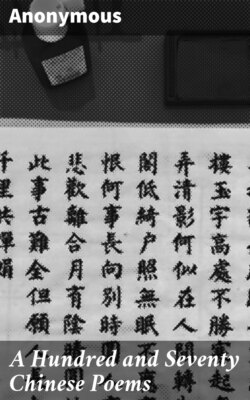 Anonymous
樓玉宇高處不勝
弄清影何似在人間
閣低綺戶照無眠不
恨何事長向別時圓
悲歡離合月有陰晴
此事古難全但願人
千里共嬋娟
A Hundred and Seventy
Chinese Poems